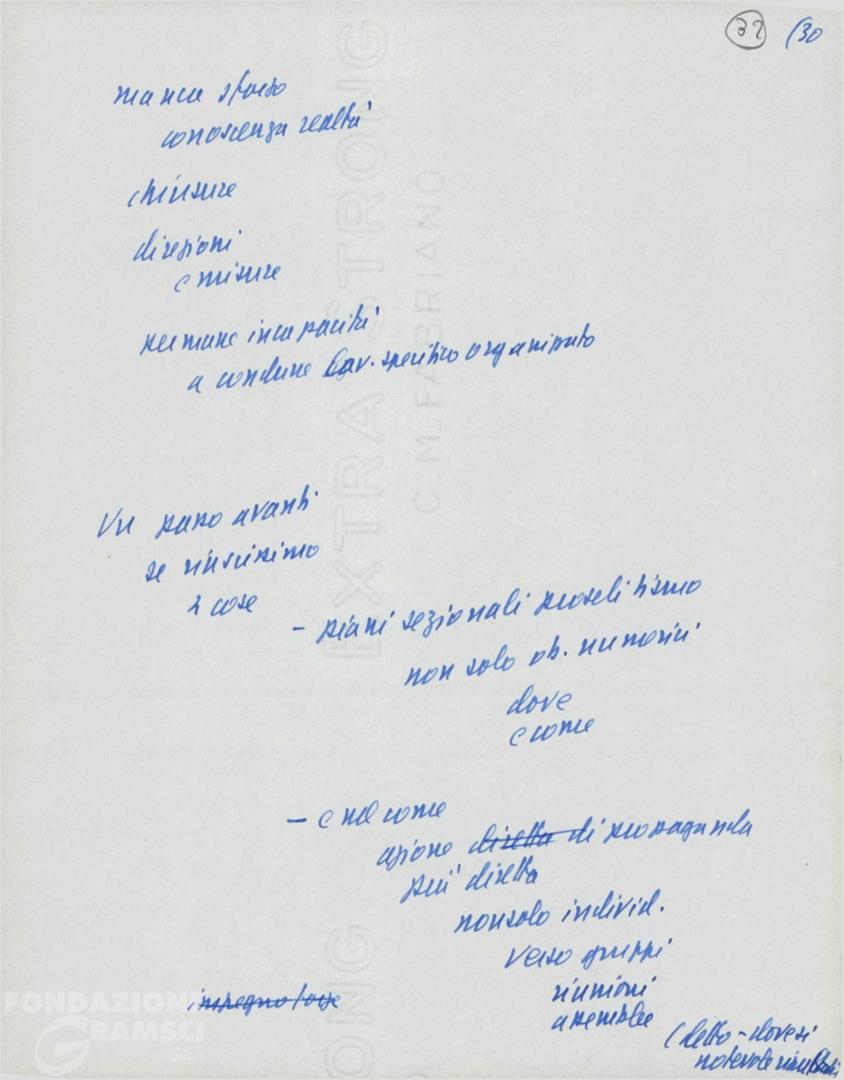 32 (30
manca sforzo
conoscenza realtà
chiusure
direzioni
e misure
permane incapacità
a condurre lav. specifico organizzato
Un passo avanti
se riuscissimo
2 cose
- piani sezionali proselitismo
non solo ob. numerici
dove
e come
- e nel come
azione diretta di propaganda
più diretta
non solo individ.
verso gruppi
riunioni
assemblee
impegno
(detto - dove si
notevole risultati
EXTRA STRONG
C.M.FABRIANO
ONG
FONDAZIONE
GRAMSCI
onlus